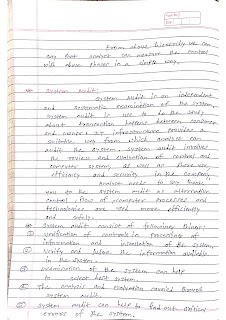 From above hierarchy we can
say that analyst can measure the control
with above phases in a simple way.
* System Audit:
System audit is an independent
and systematic examination of the system.
System audit is use to do the study
about transaction happens between customer
and owner. IT infrastructure provides a
suitable way from which analyst can
audit the system. System audit involves
the review and evaluation of control and
computer systems, as well as their use,
efficiency and security in the company
analyst needs to say thank
you to the system audit as alternative
control, flow of computer processes and
technologies are used more efficiently
and safely.
* System audit consist of following things:
① Verification of controls in processing of
information and installation of the system.
② Verify and judge the information available
in the system.
③ examination of the system can help
select best system.
④ The analysis and evaluation carried through
system audit.
⑤ System audit can help to find out critical
errors of the system.